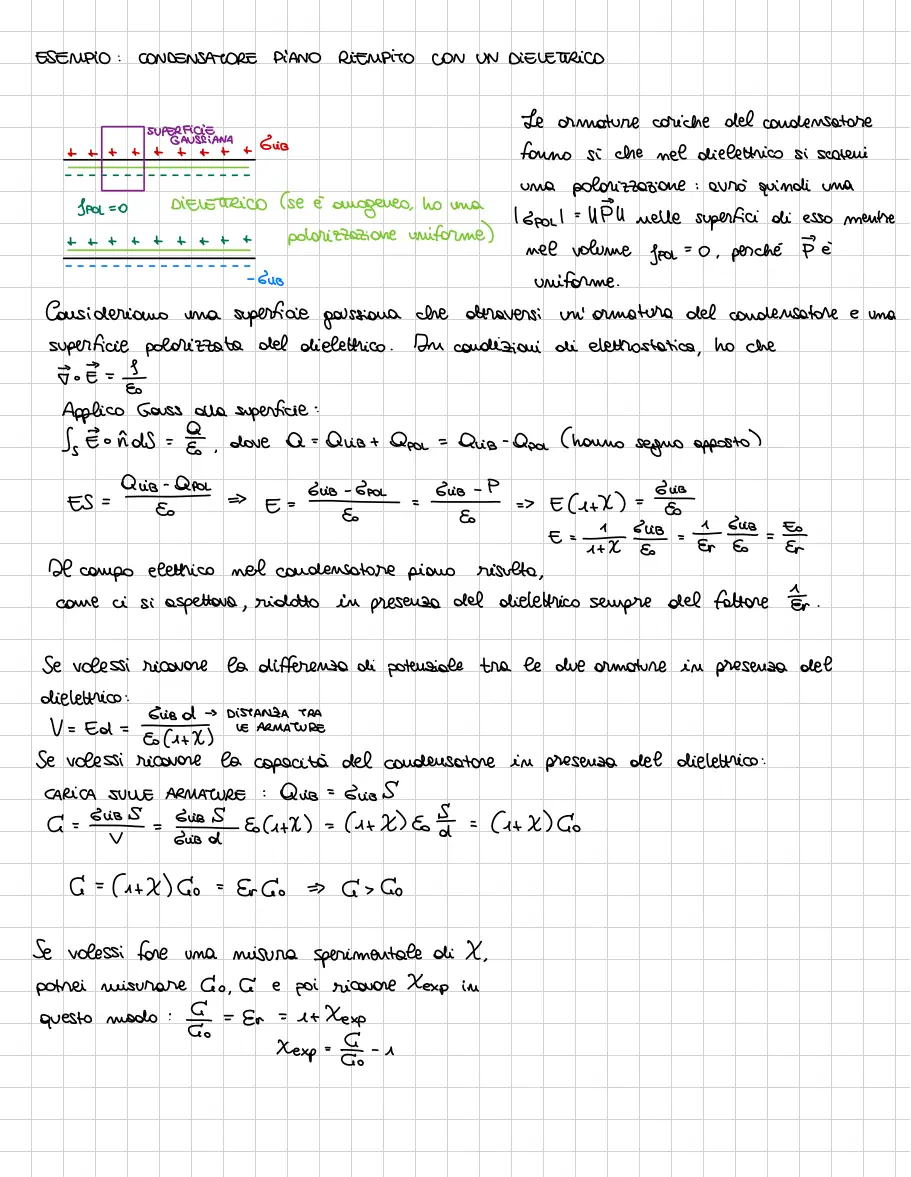 ESEMPIO: CONDENSATORE PIANO RIEMPITO CON UN DIELETTRICO
SUPERFICIE
GAUSSIANA
+ + + + + + + + σLIB
ρPOL = 0
DIELETTRICO (se è omogeneo, ho una
polarizzazione uniforme)
+ + + + + + + +
-σLIB
Le armature cariche del condensatore
fanno sì che nel dielettrico si scateni
una polarizzazione: avrò quindi una
|σPOL| = ‖P⃗‖ nelle superfici di esso mentre
nel volume ρPOL = 0, perché P⃗ è
uniforme.
Consideriamo una superficie gaussiana che attraversi un'armatura del condensatore e una
superficie polarizzata del dielettrico. In condizioni di elettrostatica, ho che
∇⃗ ∘ E⃗ = ρ/ε₀
Applico Gauss alla superficie:
∫S E⃗ ∘ n̂ dS = Q/ε₀, dove Q = QLIB + QPOL = QLIB - QPOL (hanno segno opposto)
ES = (QLIB - QPOL)/ε₀ ⇒ E = (σLIB - σPOL)/ε₀ = (σLIB - P)/ε₀ => E(1+χ) = σLIB/ε₀
E = 1/(1+χ) σLIB/ε₀ = 1/εr σLIB/ε₀ = E₀/εr
Il campo elettrico nel condensatore piano risulta,
come ci si aspettava, ridotto in presenza del dielettrico sempre del fattore 1/εr.
Se volessi ricavare la differenza di potenziale tra le due armature in presenza del
dielettrico:
V = Ed = σLIB d/(ε₀(1+χ)) → DISTANZA TRA
LE ARMATURE
Se volessi ricavare la capacità del condensatore in presenza del dielettrico:
CARICA SULLE ARMATURE : QLIB = σLIB S
C = σLIB S/V = σLIB S/(σLIB d) ε₀(1+χ) = (1+χ) ε₀ S/d = (1+χ) C₀
C = (1+χ) C₀ = εr C₀ ⇒ C > C₀
Se volessi fare una misura sperimentale di χ,
potrei misurare C₀, C e poi ricavare χexp in
questo modo : C/C₀ = εr = 1+χexp
χexp = C/C₀ - 1